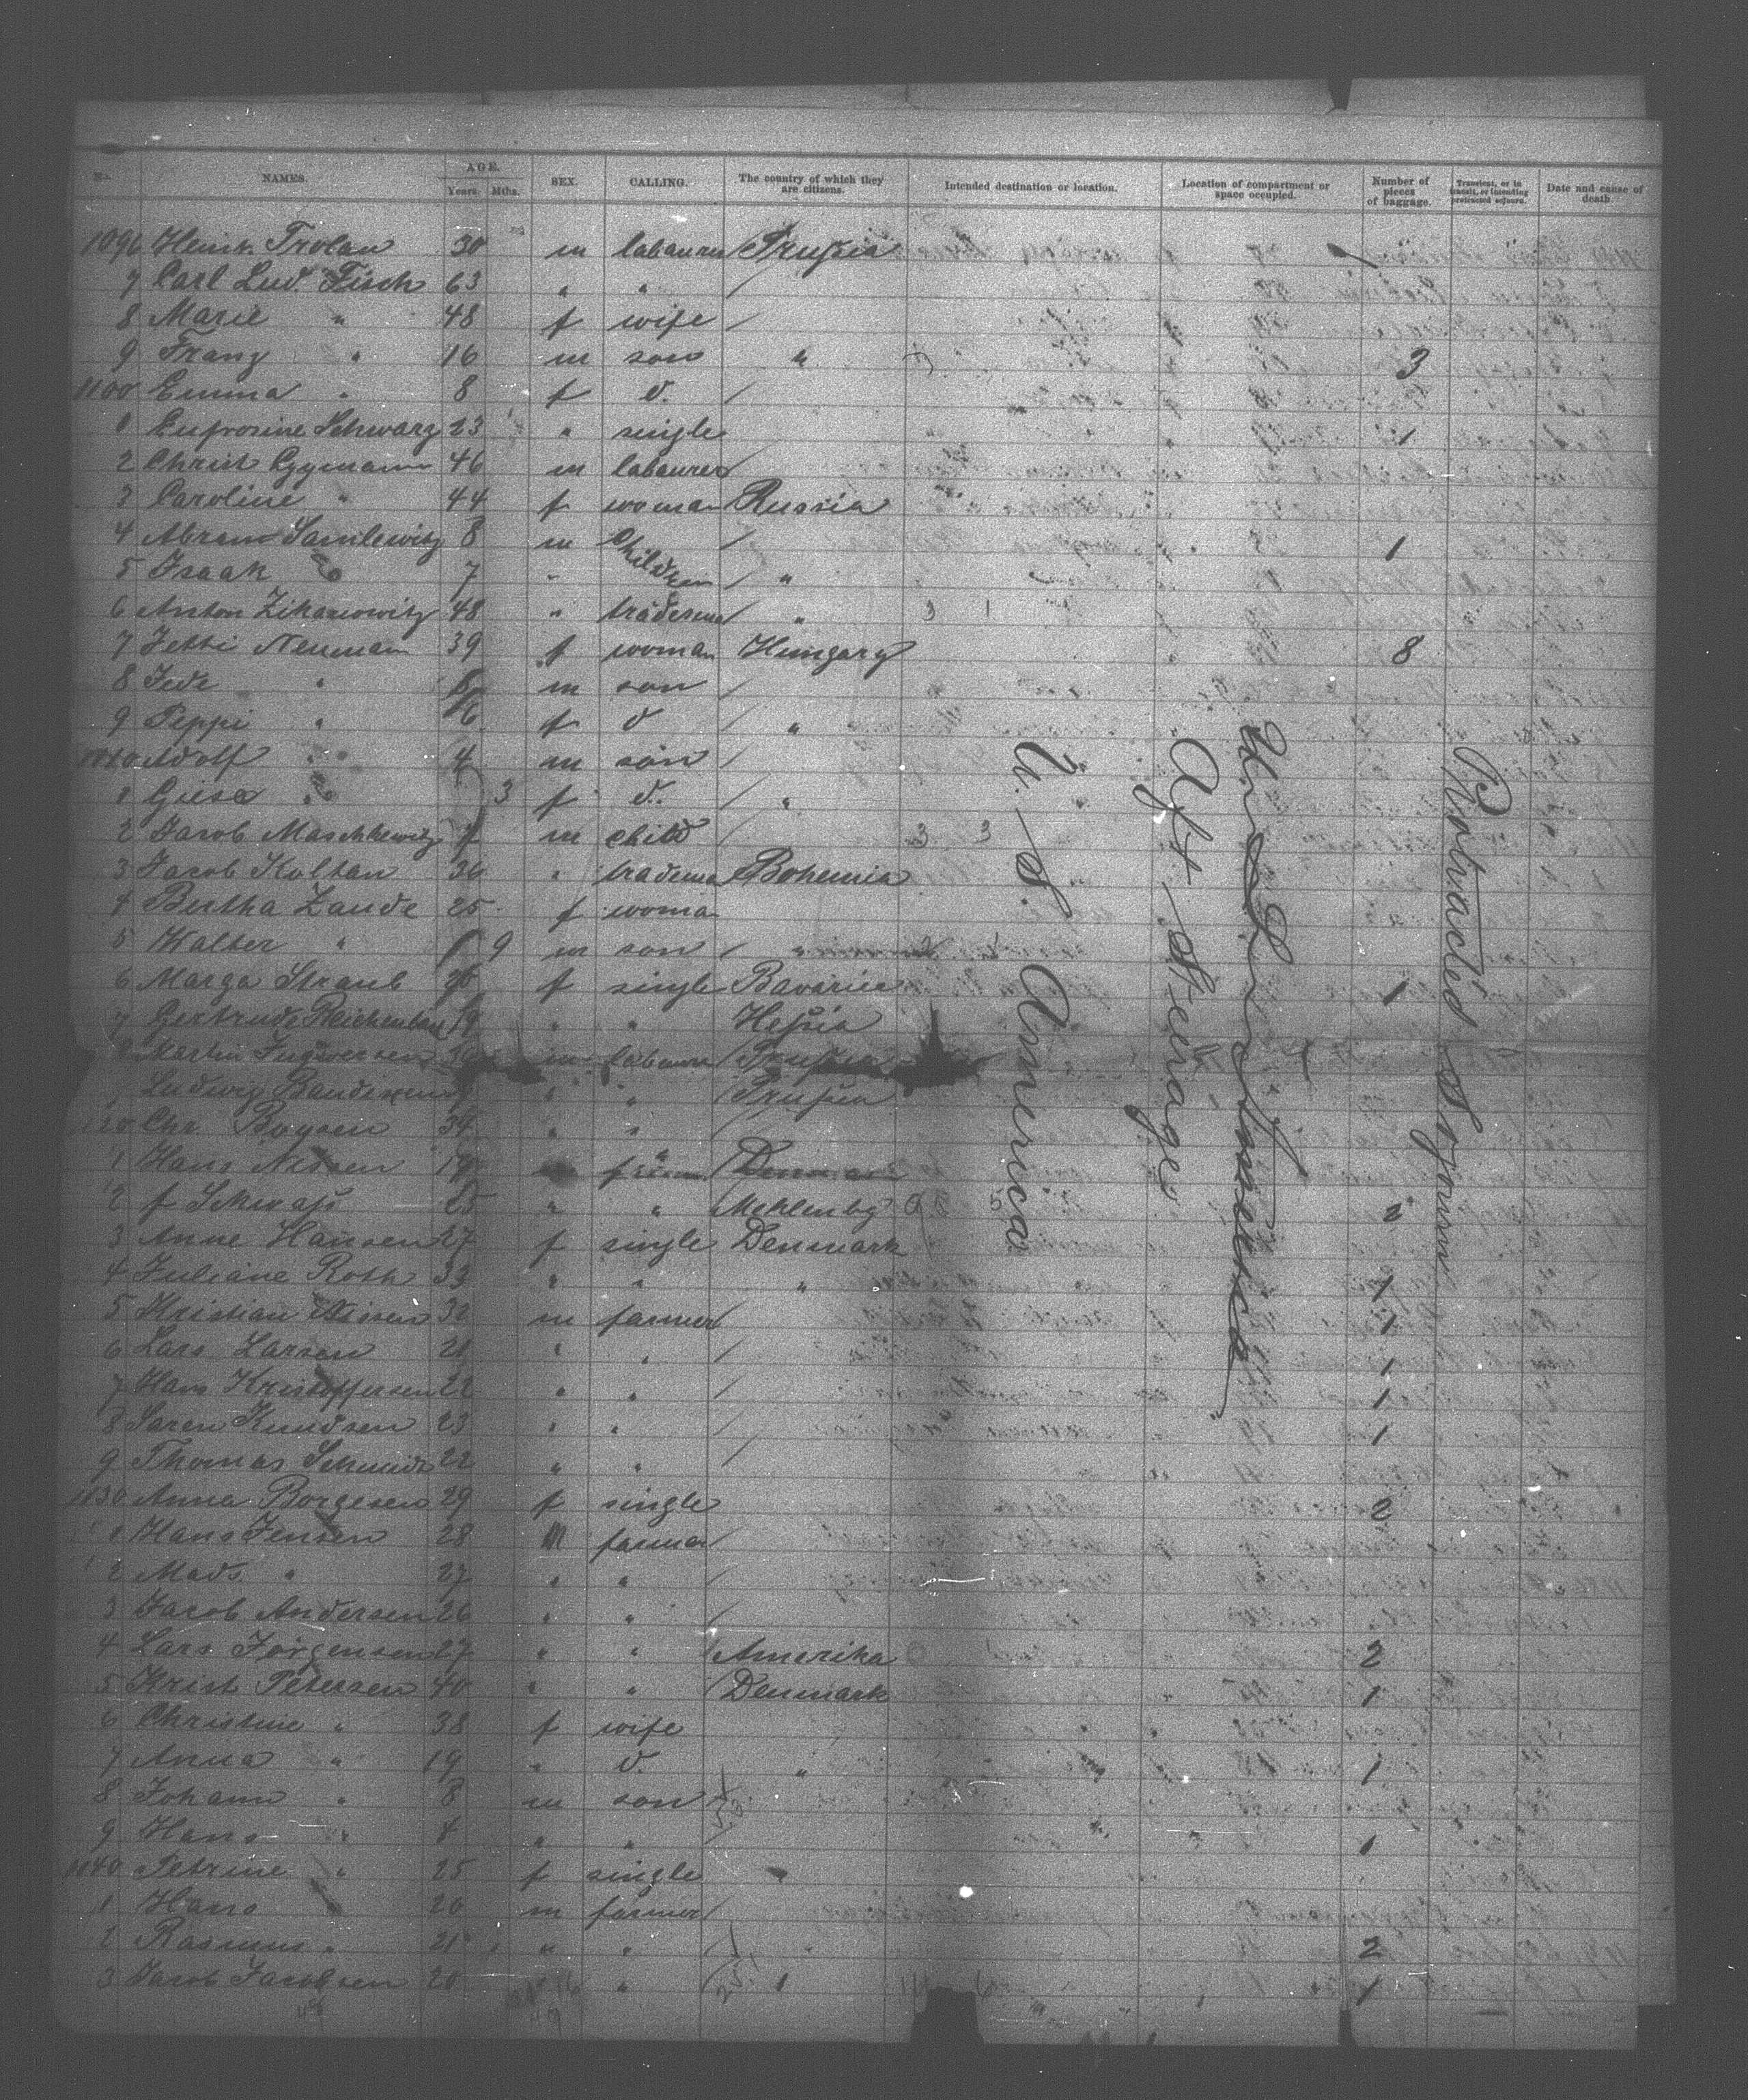 No. NAMES. AGE. Years. Mths. SEX. CALLING. The country of which they are citizens. Intended destination or location. Location of compartment or space occupied. Number of pieces of baggage. Transient, or in transit, or intending protracted sojourn. Date and cause of death.
1096 Heinr. Trolau 30 m labaurer Prussia
7 Carl Lud. Fisch 63 " " /
8 Marie " 48 f wife /
9 Franz " 16 m son " 3
1100 Emma " 8 f d. /
1 Euprosine Schwarz 23 " single 1
2 Christ Czymann 46 m labaurer /
3 Caroline " 44 f woman Russia
4 Abram Samlewitz 8 m Children / 1
5 Isaak " 7 " / "
6 Anton Zikanowitz 48 " tradesman / " 3 1
7 Jetti Neuman 39 f woman Hungary 8
8 Jede " m son /
9 Peppi " 6 f d / "
1110 Adolf " 4 m son /
1 Giesa " 3 f d. / "
2 Jacob Maschkewitz m child / 3 3
3 Jacob Koltan 36 " tradema Bohemia
4 Bertha Zaude 25 f woma
5 Walter " 9 m son / "
6 Marga Straub f single Bavaria 1
7 Gertrude Reichenbau 19 " " Hessia
Martin Ingwersen m labaurer Prussia
Ludwig Bandixen " " Prussia
1120 Chr Boysen 34 " " /
1 Hans Nissen 19 Denmark
2 f Schwass 25 " " Mehlenbg 5 2
3 Anne Hansen 27 f single Denmark
4 Juliane Roth 33 " " " 1
5 Kristian Nissen 32 m farmer / 1
6 Lars Larsen 21 " " / 1
7 Hans Kristoffersen 22 " " / 1
8 Saren Knudsen 23 " " / 1
9 Thomas Schmidt 22 " " /
1130 Anna Borgesen 29 f single 2
1 Hans Jensen 28 m farmer /
2 Mads " 27 " " /
3 Jacob Andersen 26 " " /
4 Lars Jörgensen 27 " " Amerika 2
5 Krist Petersen 40 " " Denmark 1
6 Christine " 38 f wife
7 Anna " 19 " d. " 1
8 Johann " 8 m son
9 Hans " 4 " " / 1
1140 Petrine " 25 f single "
1 Hans " 20 m farmer /
2 Rasmus " 21 " " / 2
3 Jacob Jacobsen 20 " 1
U. S. America
Aft Steerage
Protracted Sojourn